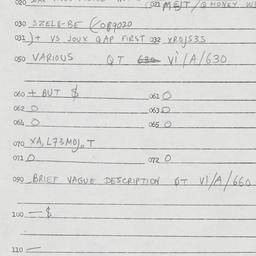 020
021 MEJT / @ MONEY
030 SZELB-BE (089020
031 )+ VS JOUX GAP FIRST 032 XP0J53S
050 VARIOUS QT VI/A/630
060 + BUT $ 061 0
062 0 063 0
064 0 065 0
070 XA, L73M0J,, T
071 0 072 0
090 BRIEF VAGUE DESCRIPTION QT VI/A/660
100 — $
110 —